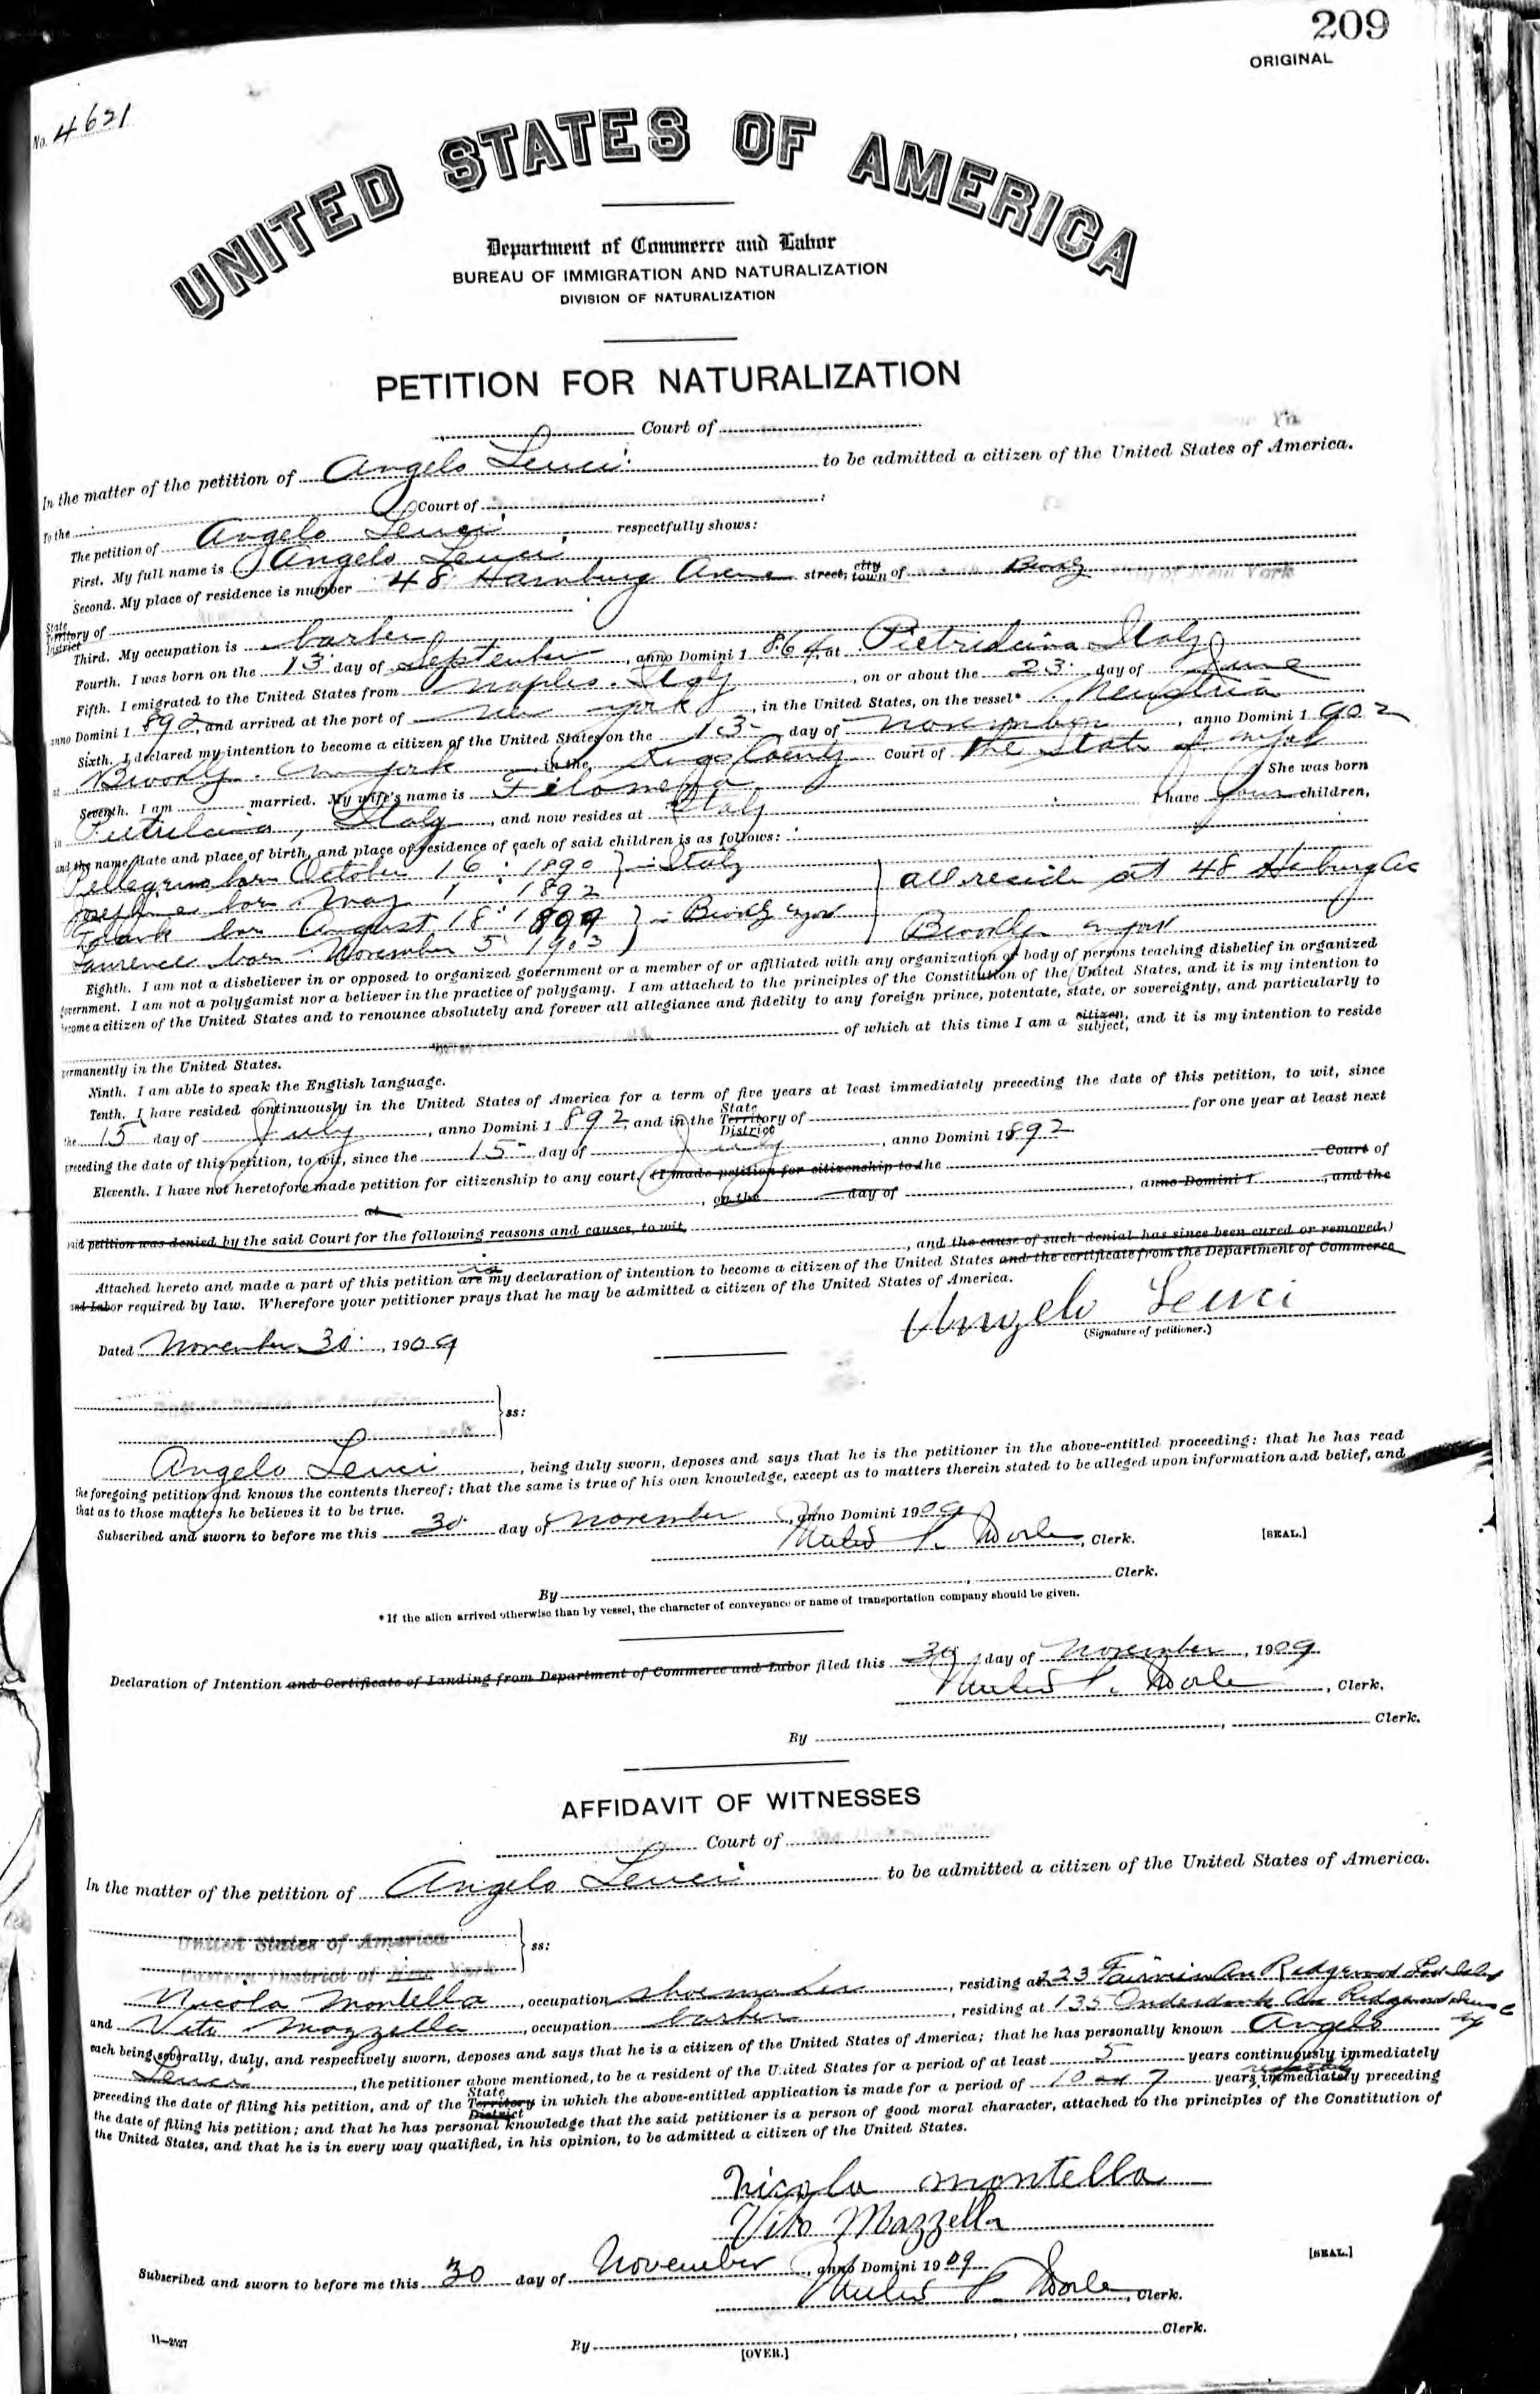 209
ORIGINAL
No. 4621
UNITED STATES OF AMERICA
Department of Commerce and Labor
BUREAU OF IMMIGRATION AND NATURALIZATION
DIVISION OF NATURALIZATION
PETITION FOR NATURALIZATION
Court of
In the matter of the petition of Angelo Leuci to be admitted a citizen of the United States of America.
To the Court of :
The petition of Angelo Leuci respectfully shows:
First. My full name is Angelo Leuci
Second. My place of residence is number 48 Hamburg Avenue street, city town of Brooklyn of New York
State Territory District of
Third. My occupation is barber
Fourth. I was born on the 13 day of September, anno Domini 1864, at Pietrelcina Italy
Fifth. I emigrated to the United States from Naples. Italy, on or about the 23 day of June
anno Domini 1892, and arrived at the port of New York, in the United States, on the vessel* Neustria
Sixth. I declared my intention to become a citizen of the United States on the 13 day of November, anno Domini 1902
at Brooklyn New York in the Kings County Court of the State of N York
Seventh. I am married. My wife's name is Filomena She was born
in Pietrelcina, Italy, and now resides at Italy I have four children,
and the name, date and place of birth, and place of residence of each of said children is as follows:
Pellegrino born October 16: 1890 } - Italy
Josephine born May 1: 1892 all reside at 48 Hamburg Av
Frank born August 18: 1899 } - Brooklyn N York
Laurence born November 5 1903 Brooklyn N York
Eighth. I am not a disbeliever in or opposed to organized government or a member of or affiliated with any organization or body of persons teaching disbelief in organized
government. I am not a polygamist nor a believer in the practice of polygamy. I am attached to the principles of the Constitution of the United States, and it is my intention to
become a citizen of the United States and to renounce absolutely and forever all allegiance and fidelity to any foreign prince, potentate, state, or sovereignty, and particularly to
of which at this time I am a citizen; subject; and it is my intention to reside
permanently in the United States.
Ninth. I am able to speak the English language.
Tenth. I have resided continuously in the United States of America for a term of five years at least immediately preceding the date of this petition, to wit, since
the 15 day of July, anno Domini 1892, and in the State Territory District of for one year at least next
preceding the date of this petition, to wit, since the 15 day of July, anno Domini 1892
Eleventh. I have not heretofore made petition for citizenship to any court. (I made petition for citizenship to the Court of
at, on the day of, anno Domini 1, and the
said petition was denied by the said Court for the following reasons and causes, to wit,
, and the cause of such denial has since been cured or removed.)
Attached hereto and made a part of this petition are is my declaration of intention to become a citizen of the United States and the certificate from the Department of Commerce
and Labor required by law. Wherefore your petitioner prays that he may be admitted a citizen of the United States of America.
Angelo Leuci
(Signature of petitioner.)
Dated November 30, 1909
ss:
Angelo Leuci, being duly sworn, deposes and says that he is the petitioner in the above-entitled proceeding; that he has read
the foregoing petition and knows the contents thereof; that the same is true of his own knowledge, except as to matters therein stated to be alleged upon information and belief, and
that as to those matters he believes it to be true.
Subscribed and sworn to before me this 30 day of November, anno Domini 1909
Clerk. [SEAL.]
By, Clerk.
*If the alien arrived otherwise than by vessel, the character of conveyance or name of transportation company should be given.
Declaration of Intention and Certificate of Landing from Department of Commerce and Labor filed this 30 day of November, 1909
, Clerk.
By, Clerk.
AFFIDAVIT OF WITNESSES
Court of
In the matter of the petition of Angelo Leuci to be admitted a citizen of the United States of America.
United States of America
Eastern District of New York ss:
Nicola Montella, occupation shoemaker, residing at 223 Ridgewood
and Vito Mazzella, occupation barber, residing at 135 Onderdonk Av Ridgewood
each being severally, duly, and respectively sworn, deposes and says that he is a citizen of the United States of America; that he has personally known Angelo
Leuci, the petitioner above mentioned, to be a resident of the United States for a period of at least 5 years continuously immediately
preceding the date of filing his petition, and of the State Territory District in which the above-entitled application is made for a period of 10 and 7 years, immediately preceding
the date of filing his petition; and that he has personal knowledge that the said petitioner is a person of good moral character, attached to the principles of the Constitution of
the United States, and that he is in every way qualified, in his opinion, to be admitted a citizen of the United States.
Nicola Montella
Vito Mazzella
Subscribed and sworn to before me this 30 day of November, anno Domini 1909 [SEAL.]
, Clerk.
By, Clerk.
11-2527
[OVER.]